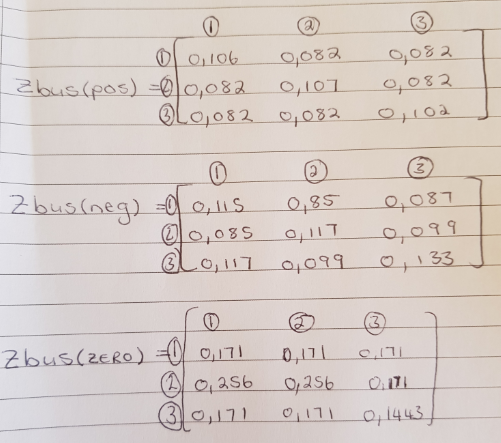 ① ② ③
① 0,106 0,082 0,082
Zbus(pos) = ② 0,082 0,107 0,082
③ 0,082 0,082 0,102
① ② ③
Zbus(neg) = ① 0,115 0,85 0,087
② 0,085 0,117 0,099
③ 0,117 0,099 0,133
① ② ③
Zbus(ZERO) = ① 0,171 0,171 0,171
② 0,256 0,256 0,171
③ 0,171 0,171 0,1443